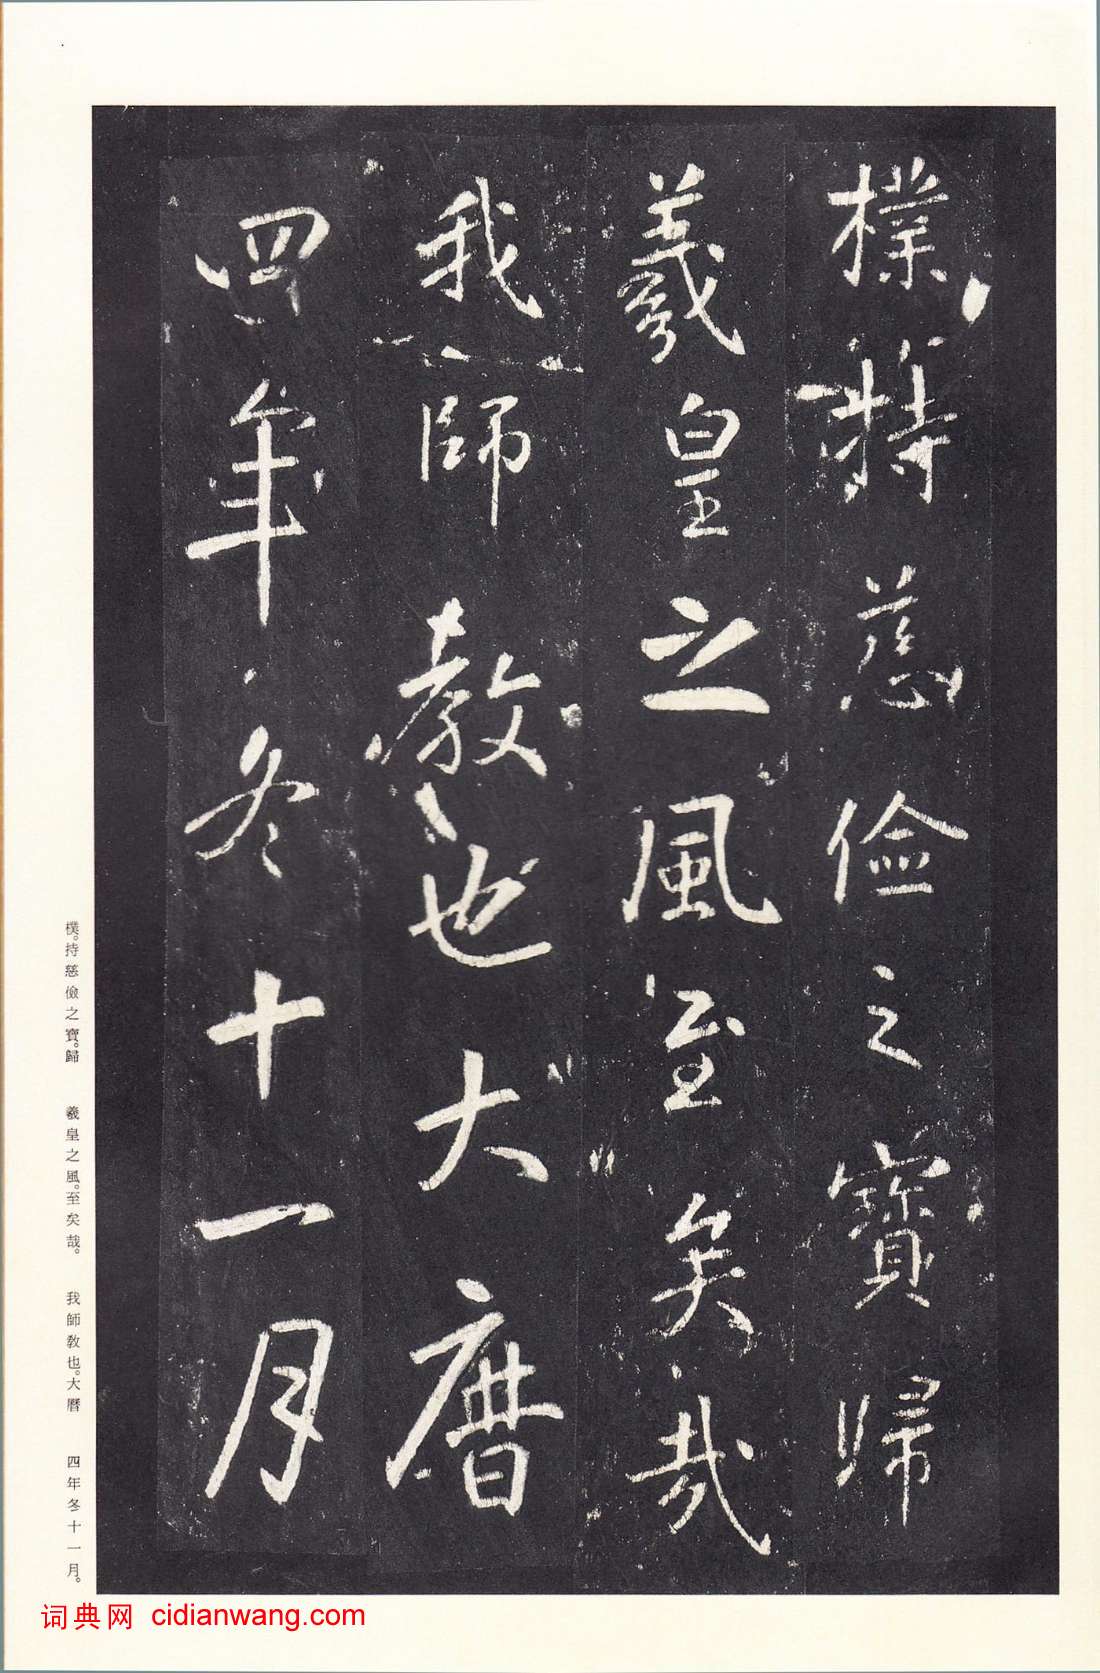 樸持慈儉之寶歸
羲皇之風至矣哉
我師教也大曆
四年冬十一月
樸。持慈儉之寶。歸 羲皇之風。至矣哉。 我師教也。大曆 四年冬十一月。
词典网 cidianwang.com